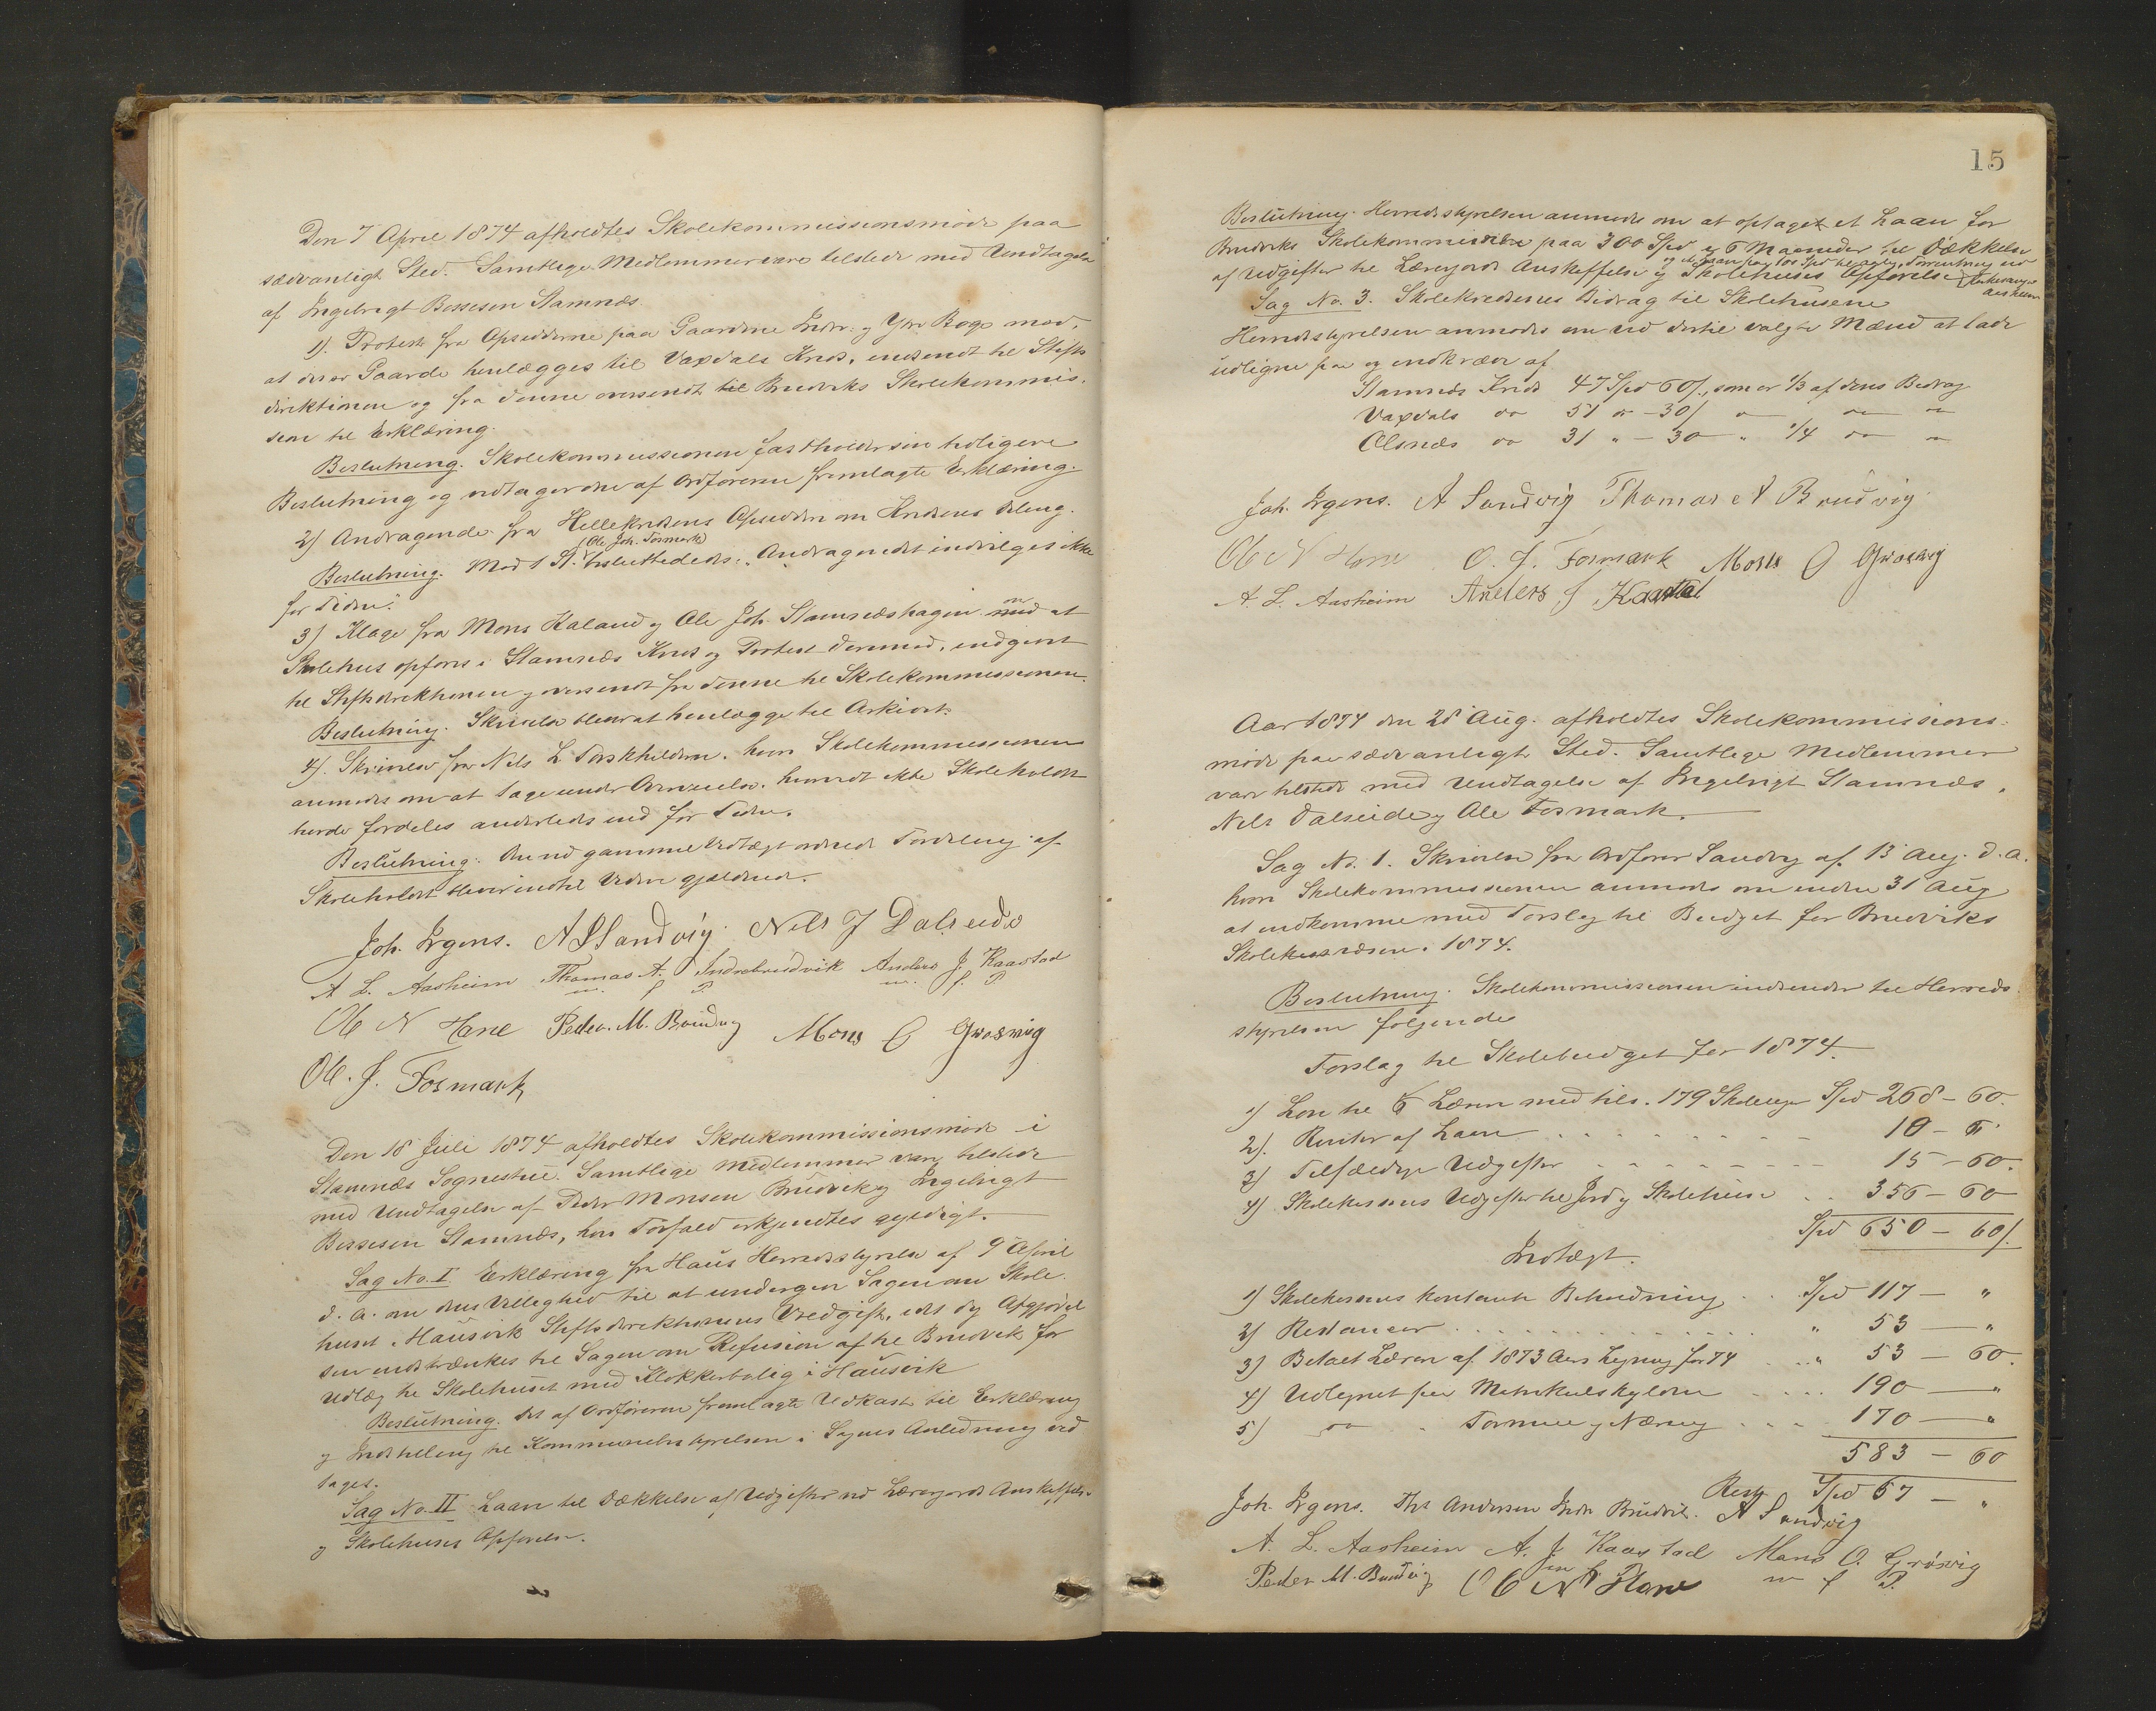 Den 7 April 1874 afholdtes Skolekommissionsmøde paa
sædvanligt Sted. Samtlige Medlemmer vare tilstede med Undtagelse
af Ingebrigt Bessesen Stamnæs.
1). Protest fra Opsidderne paa Gaardene Indre- og Ytre Boge mod,
at disse Gaarde henlægges til Vaxdals Kreds, indsendt til Stifts
direktionen og fra denne oversendt til Bruviks Skolekommis-
sion til Erklæring.
Beslutning. Skolekommissionen fastholder sin tidligere
Beslutning og vedtager den af Ordføreren fremlagte Erklæring.
2) Andragende fra Hellekredsens Opsiddere om Kredsens Deling.
(Ole Joh. Fosmark)
Beslutning. Mod 1 St. besluttededes: "Andragendet indvilges ikke
for Tiden".
3) Klage fra Mons Kaland og Ole Joh. Stamnæshagen om at
Skolehus opføres i Stamnæs Kreds og Protest derimod, indgivet
til Stiftsdirektionen og oversendt fra denne til Skolekommissionen.
Beslutning. Skrivelsen bliver at henlægge til Arkivet.
4). Skrivelse fra Nils L. hvori Skolekommissionen
anmodes om at tage under Overveielse, hvorvidt ikke Skoleholdet
burde fordeles anderledes end for Tiden.
Beslutning: Den ved gammel Vedtægt ordnede Fordeling af
Skoleholdet bliver indtil Videre gjældende.
Joh. Irgens. A S Sandvig. Nils J Dalseide
A L. Aasheim Thomas A. Indrebrudvik Anders J. Kaastad
m. f P. m. f. P
Ole N Hane Peder. M. Brudvig Mons O Grøsvig
Ole. J. Fosmark
Den 18 Juli 1874 afholdtes Skolekommissionsmøde i
Stamnæs Sognestue. Samtlige Medlemmer vare tilstede
med Undtagelse af Peder Monsen Brudvik og Ingebrigt
Bessesen Stamnæs, hvis Forfald erkjendtes gyldigt.
Sag No. I. Erklæring fra Haus Herredsstyrelse af 9 April
d. A. om dens Villighed til at undergive Sagen om Skole-
huset i Hausvik Stiftsdirektionens Afgjørel
sen indskrænkes til Sagen om Refusion af til Brudvik for
Udlæg til Skolehuset med Klokkerbolig i Hausvik
Beslutning. Det af Ordføreren fremlagte Udkast til Erklæring
og Indstilling til Kommunebestyrelsen i Sagens Anledning ved
tages.
Sag No. II Laan til Dækkelse af Udgifter ved Lærerjords Anskaffelse
og Skolehuses Opførelse.
15
Beslutning. Herredsstyrelsen anmodes om at optaget et Laan for
Bruviks Skolekommission paa 300 Spd og 6 Maaneder til Dækkelse
af Udgifter til Lærerjords Anskaffelse og Skolehuses Opførelse
Sag No. 3. Skolekredsenes Bidrag til Skolehusene
Herredsstyrelsen anmodes om ved dertil valgte Mænd at lade
udligne paa og indkræve af
Stamnæs Kreds 47 Spd 60 /, som er 1/3 af dens Bidrag
Vaxdals do 51 do - 30 / " do "
Olsnæs do 31 " - 30 " 1/4 do "
Joh. Irgens. A Sandvig Thomas A Brudvig
Ole N Hane O. J. Fosmark Mons O Grøsvig
A. L. Aasheim Anders J Kaastad
Aar 1874 den 28 Aug. afholdtes Skolekommissions-
møde paa sædvanligt Sted. Samtlige Medlemmer
vare tilstede med Undtagelse af Ingebrigt Stamnæs,
Nils Dalseide og Ole Fosmark.
Sag No. 1. Skrivelse fra Ordfører Sandvig af 13 Aug. d. A.
hvori Skolekommissionen anmodes om inden 31 Aug
at indkomme med Forslag til Budget for Bruviks
Skolekasse i 1874.
Beslutning. Skolekommissionen indsender til Herreds
styrelsen følgende
Forslag til Skolebudget for 1874.
1) Løn til 6 Lærere med tils. 179 Skoleuger Spd 268 - 60.
2). Renter af Laan . . . . . 10 - "
3) Tilfældige Udgifter . . . . . 15 - 60.
4) Skolekassens Udgifter til Jord og Skolehuse . . 356 - 60
Spd 650 - 60 /.
Indtægt.
1) Skolekassens kontante Beholdning . . Spd 117 - "
2) Restancer . . . . . " 53 - "
3) Betalt Læreren af 1873 Aars Ligning for 74 . . . " 53 - 60.
4) Udlignet paa Matrikulskylden . . . . 190 - "
5) do " Formue og Næring . . . 170 - "
583 - 60
Rest Spd 67 - "
Joh. Irgens. Ths Andersen Indr Brudvik. A Sandvig
A. L. Aasheim A. J. Kaastad Mons O. Grøsvig
m f P. m f P.
Peder M. Brudvig Ole N Hane